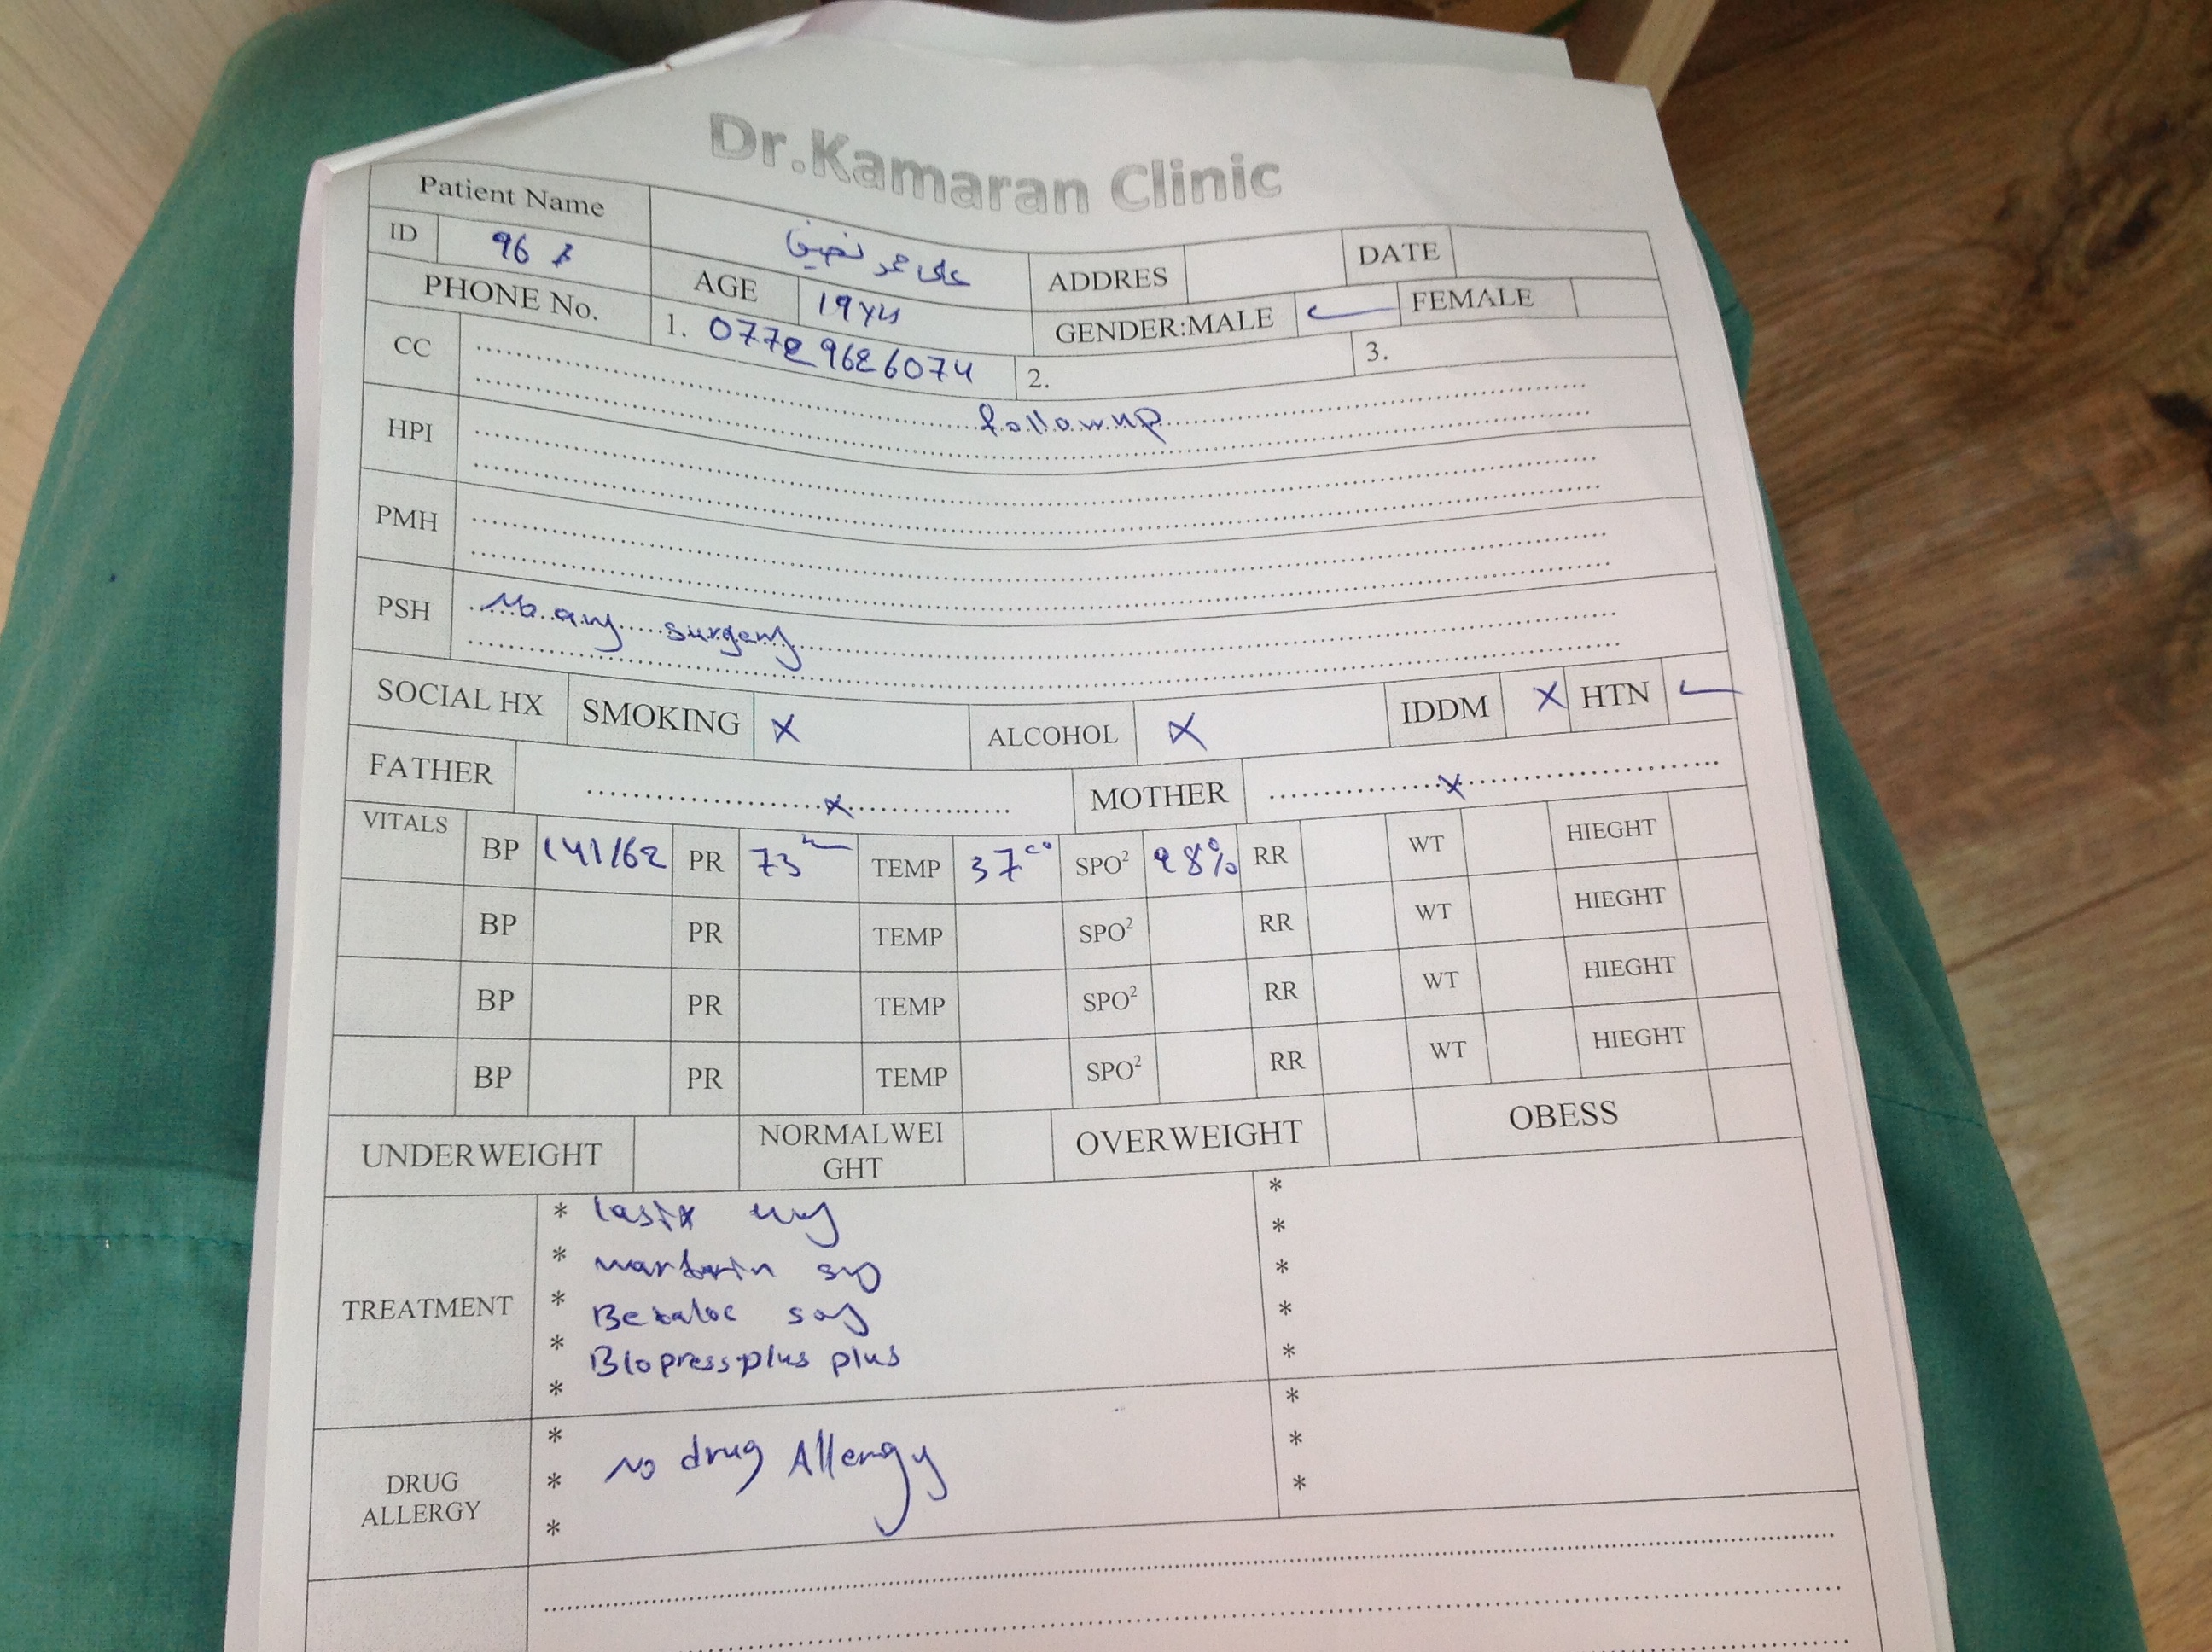 Dr.Kamaran Clinic
Patient Name على
ID 96 AGE 19 yrs ADDRES DATE
PHONE No. 1. 2. 3. GENDER:MALE ✓ FEMALE
CC follow up
HPI
PMH
PSH No any surgery
SOCIAL HX SMOKING X ALCOHOL X IDDM X HTN ✓
FATHER X MOTHER X
VITALS BP 141/62 PR 73 TEMP 37 c° SPO² 98% RR WT HIEGHT
BP PR TEMP SPO² RR WT HIEGHT
BP PR TEMP SPO² RR WT HIEGHT
BP PR TEMP SPO² RR WT HIEGHT
UNDERWEIGHT NORMALWEI
GHT OVERWEIGHT OBESS
TREATMENT
* lasix *
* *
* *
* Blopress plus plus *
* *
DRUG
ALLERGY
* *
* No drug Allergy *
* *